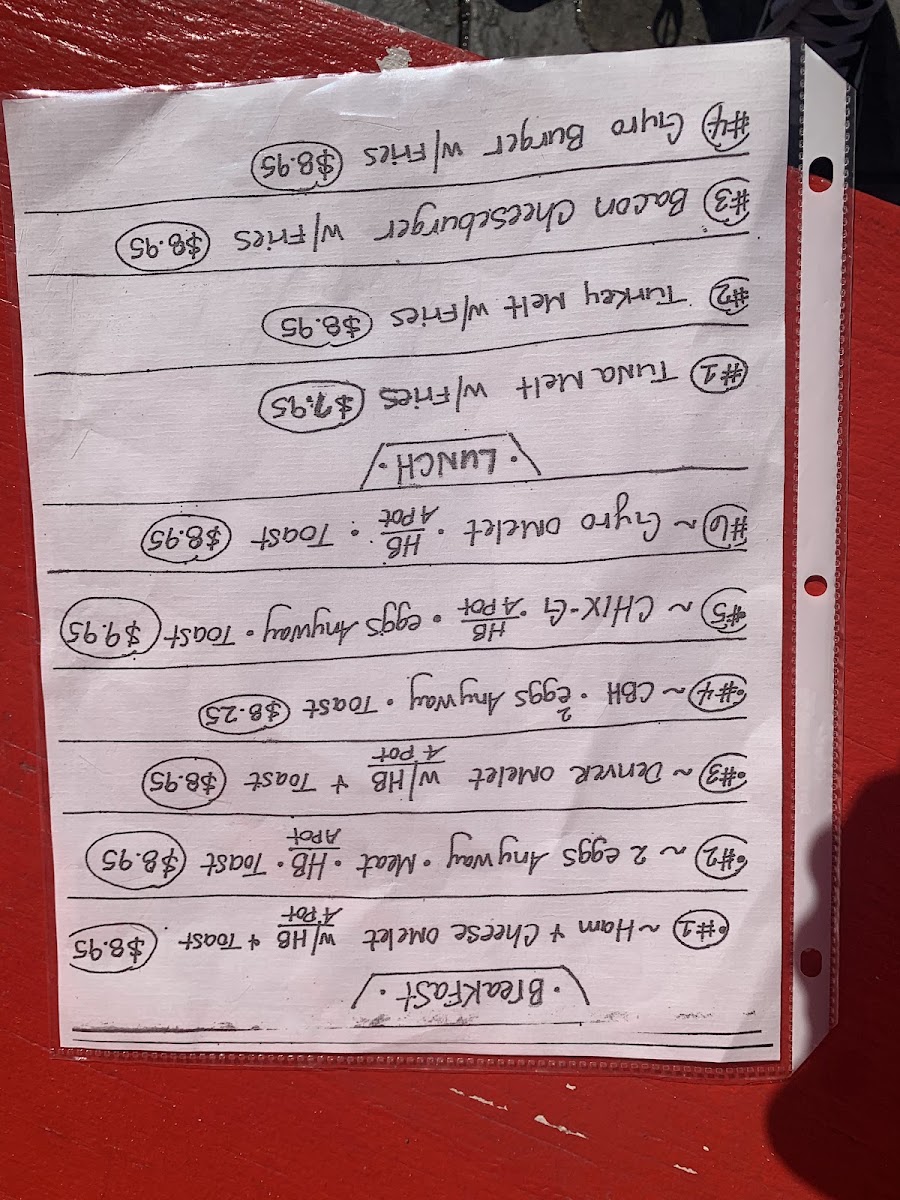 • BreakFast •
#1 ~ Ham + Cheese omelet w/HB A Pot + Toast $8.95
#2 ~ 2 eggs Anyway • Meat • HB A Pot • Toast $8.95
#3 ~ Denver omelet w/HB A Pot + Toast $8.95
#4 ~ CBH • 2 eggs Anyway • Toast $8.25
#5 ~ CHIX-G • HB A Pot • eggs Anyway • Toast $9.95
#6 ~ Gyro omelet • HB A Pot • Toast $8.95
• LUNCH •
#1 Tuna Melt w/Fries $7.95
#2 Turkey Melt w/Fries $8.95
#3 Bacon Cheeseburger w/Fries $8.95
#4 Gyro Burger w/Fries $8.95